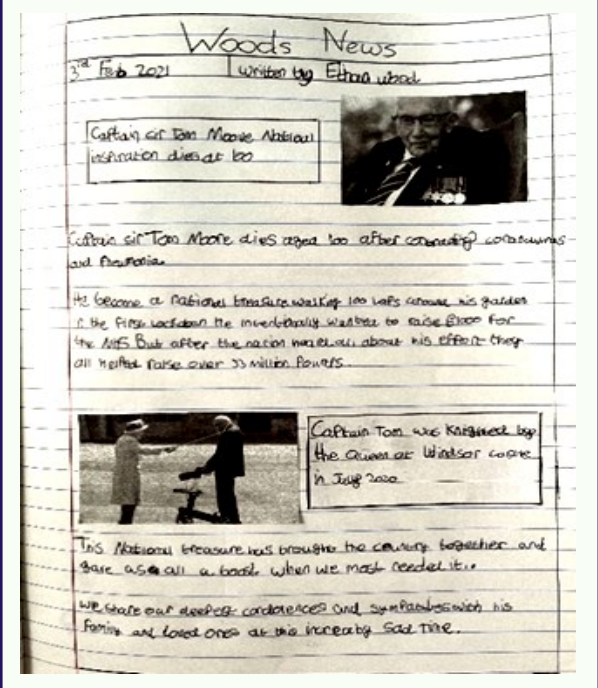 Woods News
3rd Feb 2021 written by Ethan wood
Captain sir Tom Moore National
inspiration dies at 100
Captain sir Tom Moore dies aged 100 after contracting coronavirus
and
He become a national treasure walking 100 laps around his garden
the first lockdown he wanted to raise £1000 for
the NHS But after the nation heard about his effort they
all helped raise over 33 million Pounds
Captain Tom was Knighted by
the Queen at Windsor
in July 2020
This National treasure has brought the country together and
gave all a boost when we most needed it..
we share our deepest condolences and with his
Family and loved ones at this sad time.